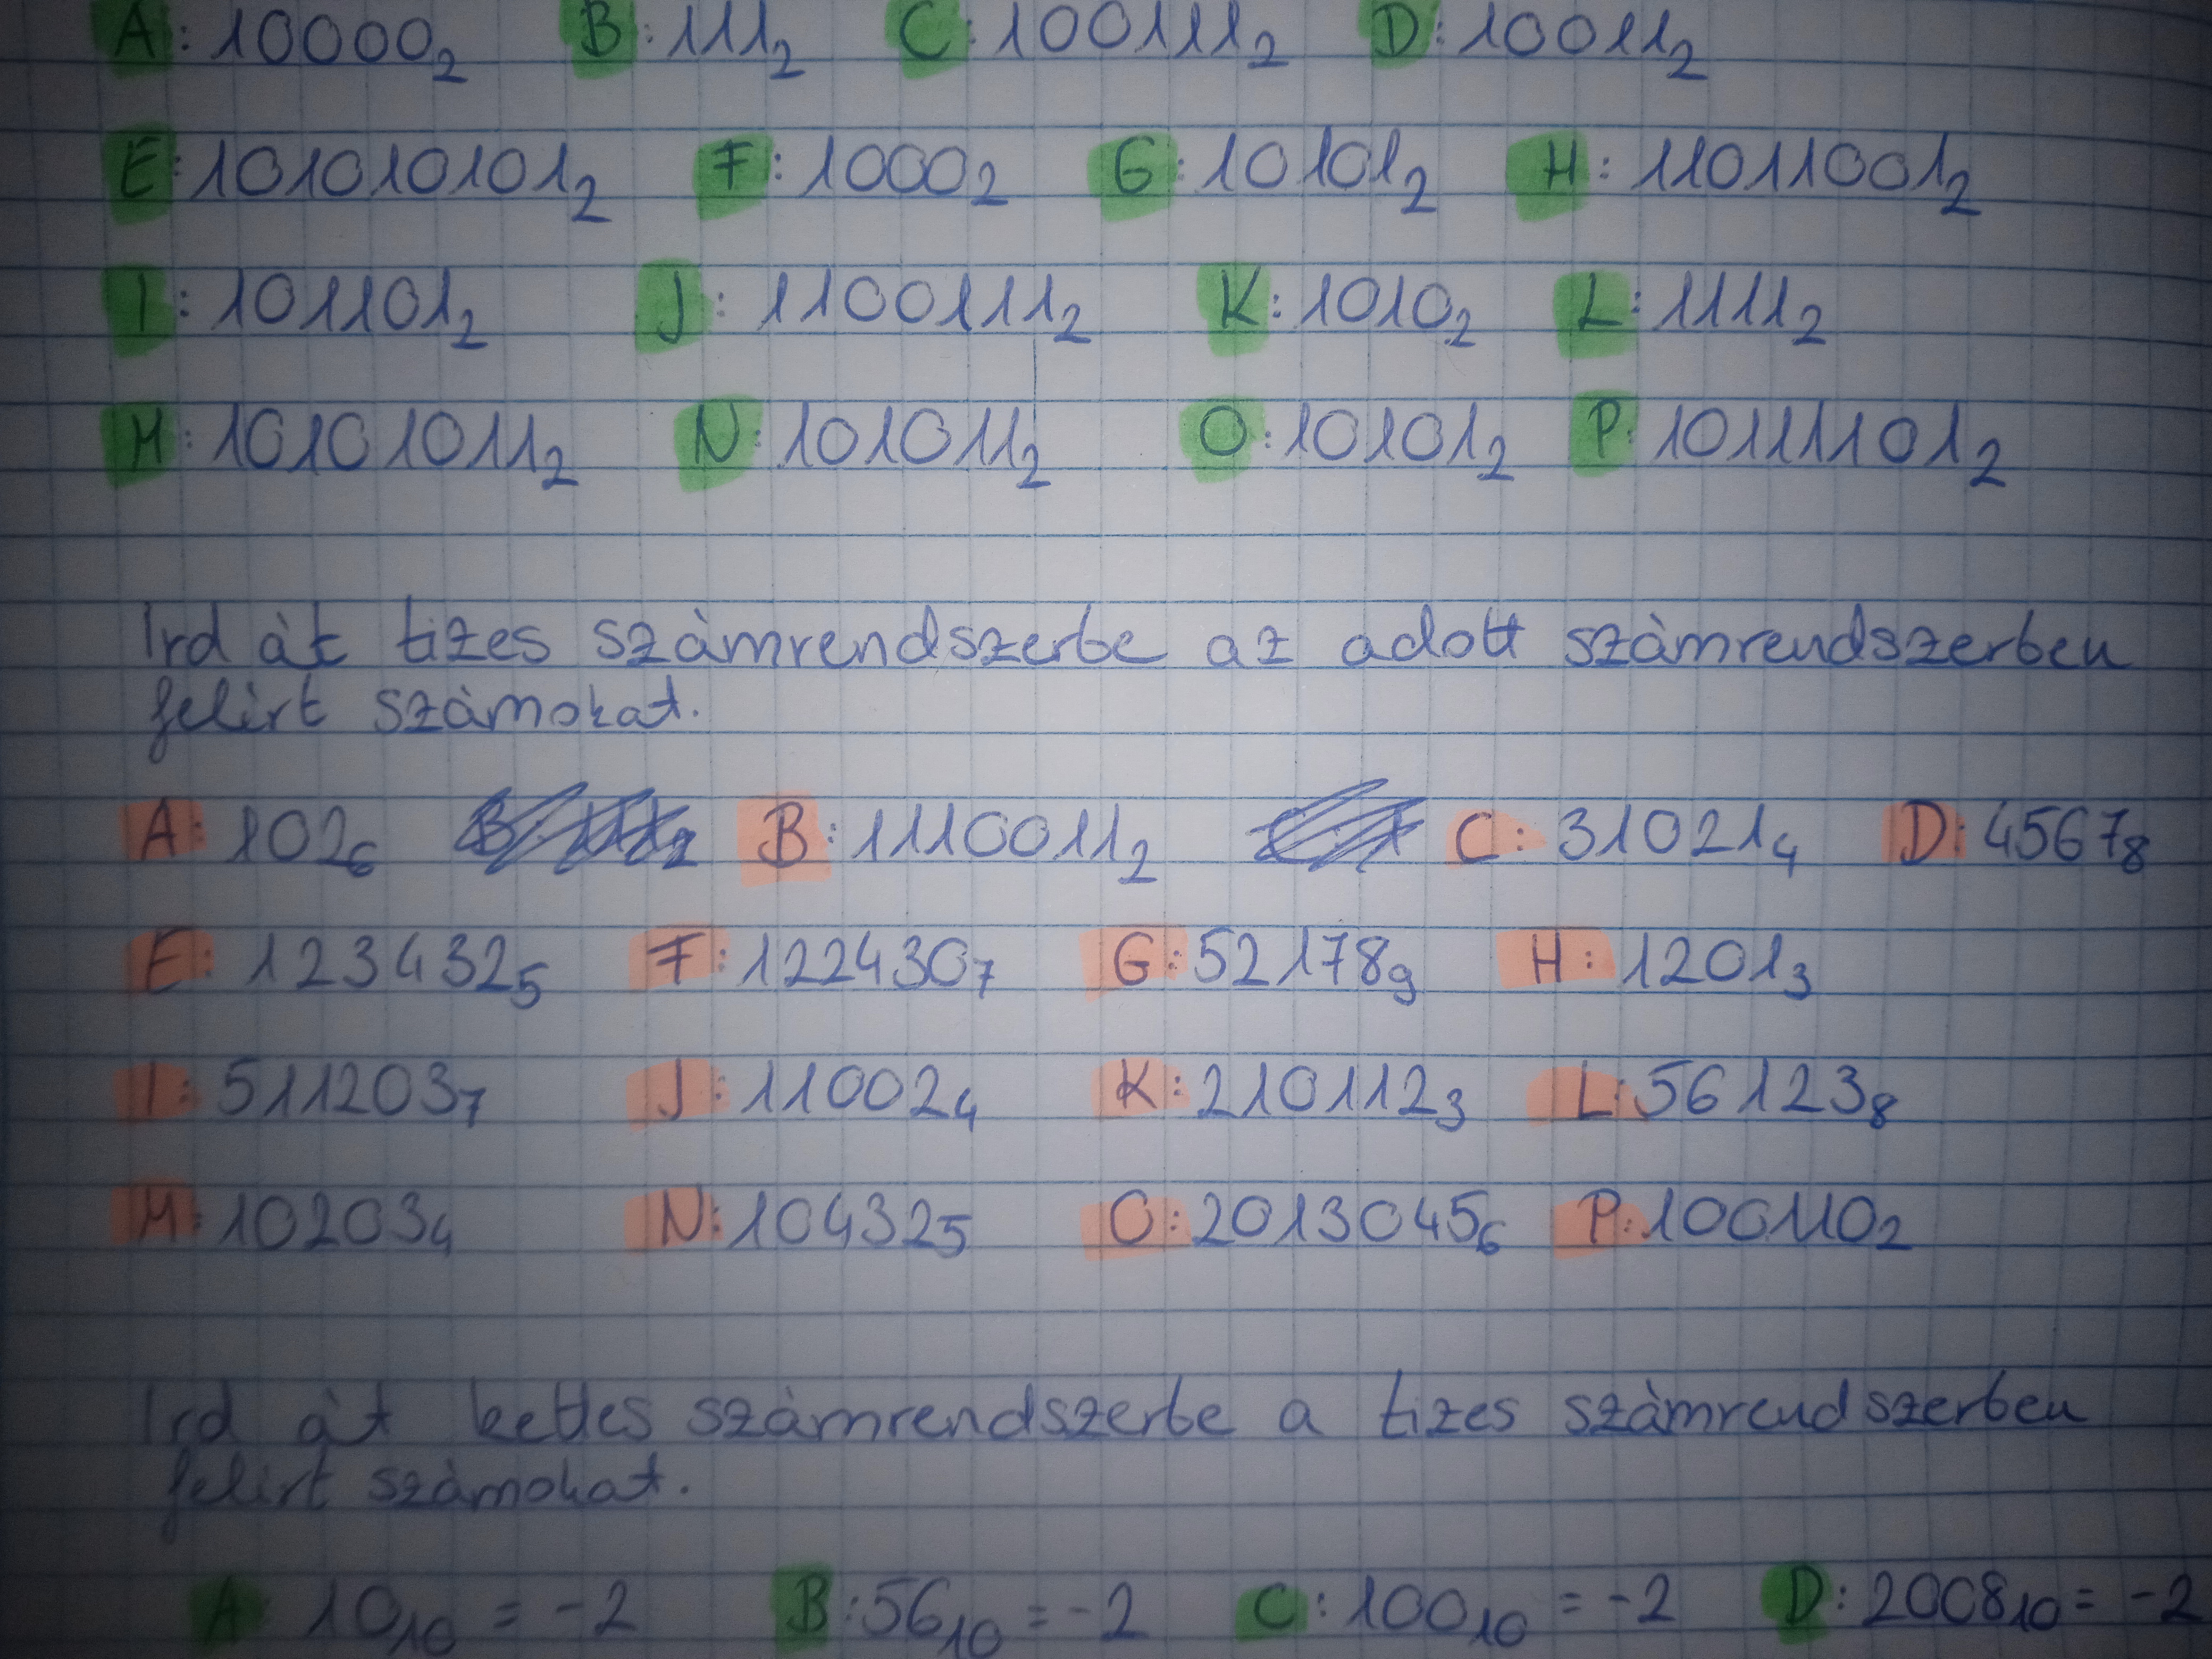 A: 10000₂ B: 111₂ C: 100111₂ D: 10011₂
E: 101010101₂ F: 1000₂ G: 10101₂ H: 11011001₂
I: 101101₂ J: 1100111₂ K: 1010₂ L: 1111₂
M: 10101011₂ N: 101011₂ O: 10101₂ P: 10111101₂
Ird àt tizes szàmrendszerbe az adott szàmrendszerben
felìrt szàmokat.
A: 102₆ B: 1110011₂ C: 31021₄ D: 4567₈
E: 123432₅ F: 122430₇ G: 52178₉ H: 1201₃
I: 511203₇ J: 11002₄ K: 210112₃ L: 56123₈
M: 10203₄ N: 10432₅ O: 2013045₆ P: 100110₂
Ird àt kettes szàmrendszerbe a tizes szàmrendszerben
felìrt szàmokat.
A: 10₁₀ = -2 B: 56₁₀ = -2 C: 100₁₀ = -2 D: 2008₁₀ = -2